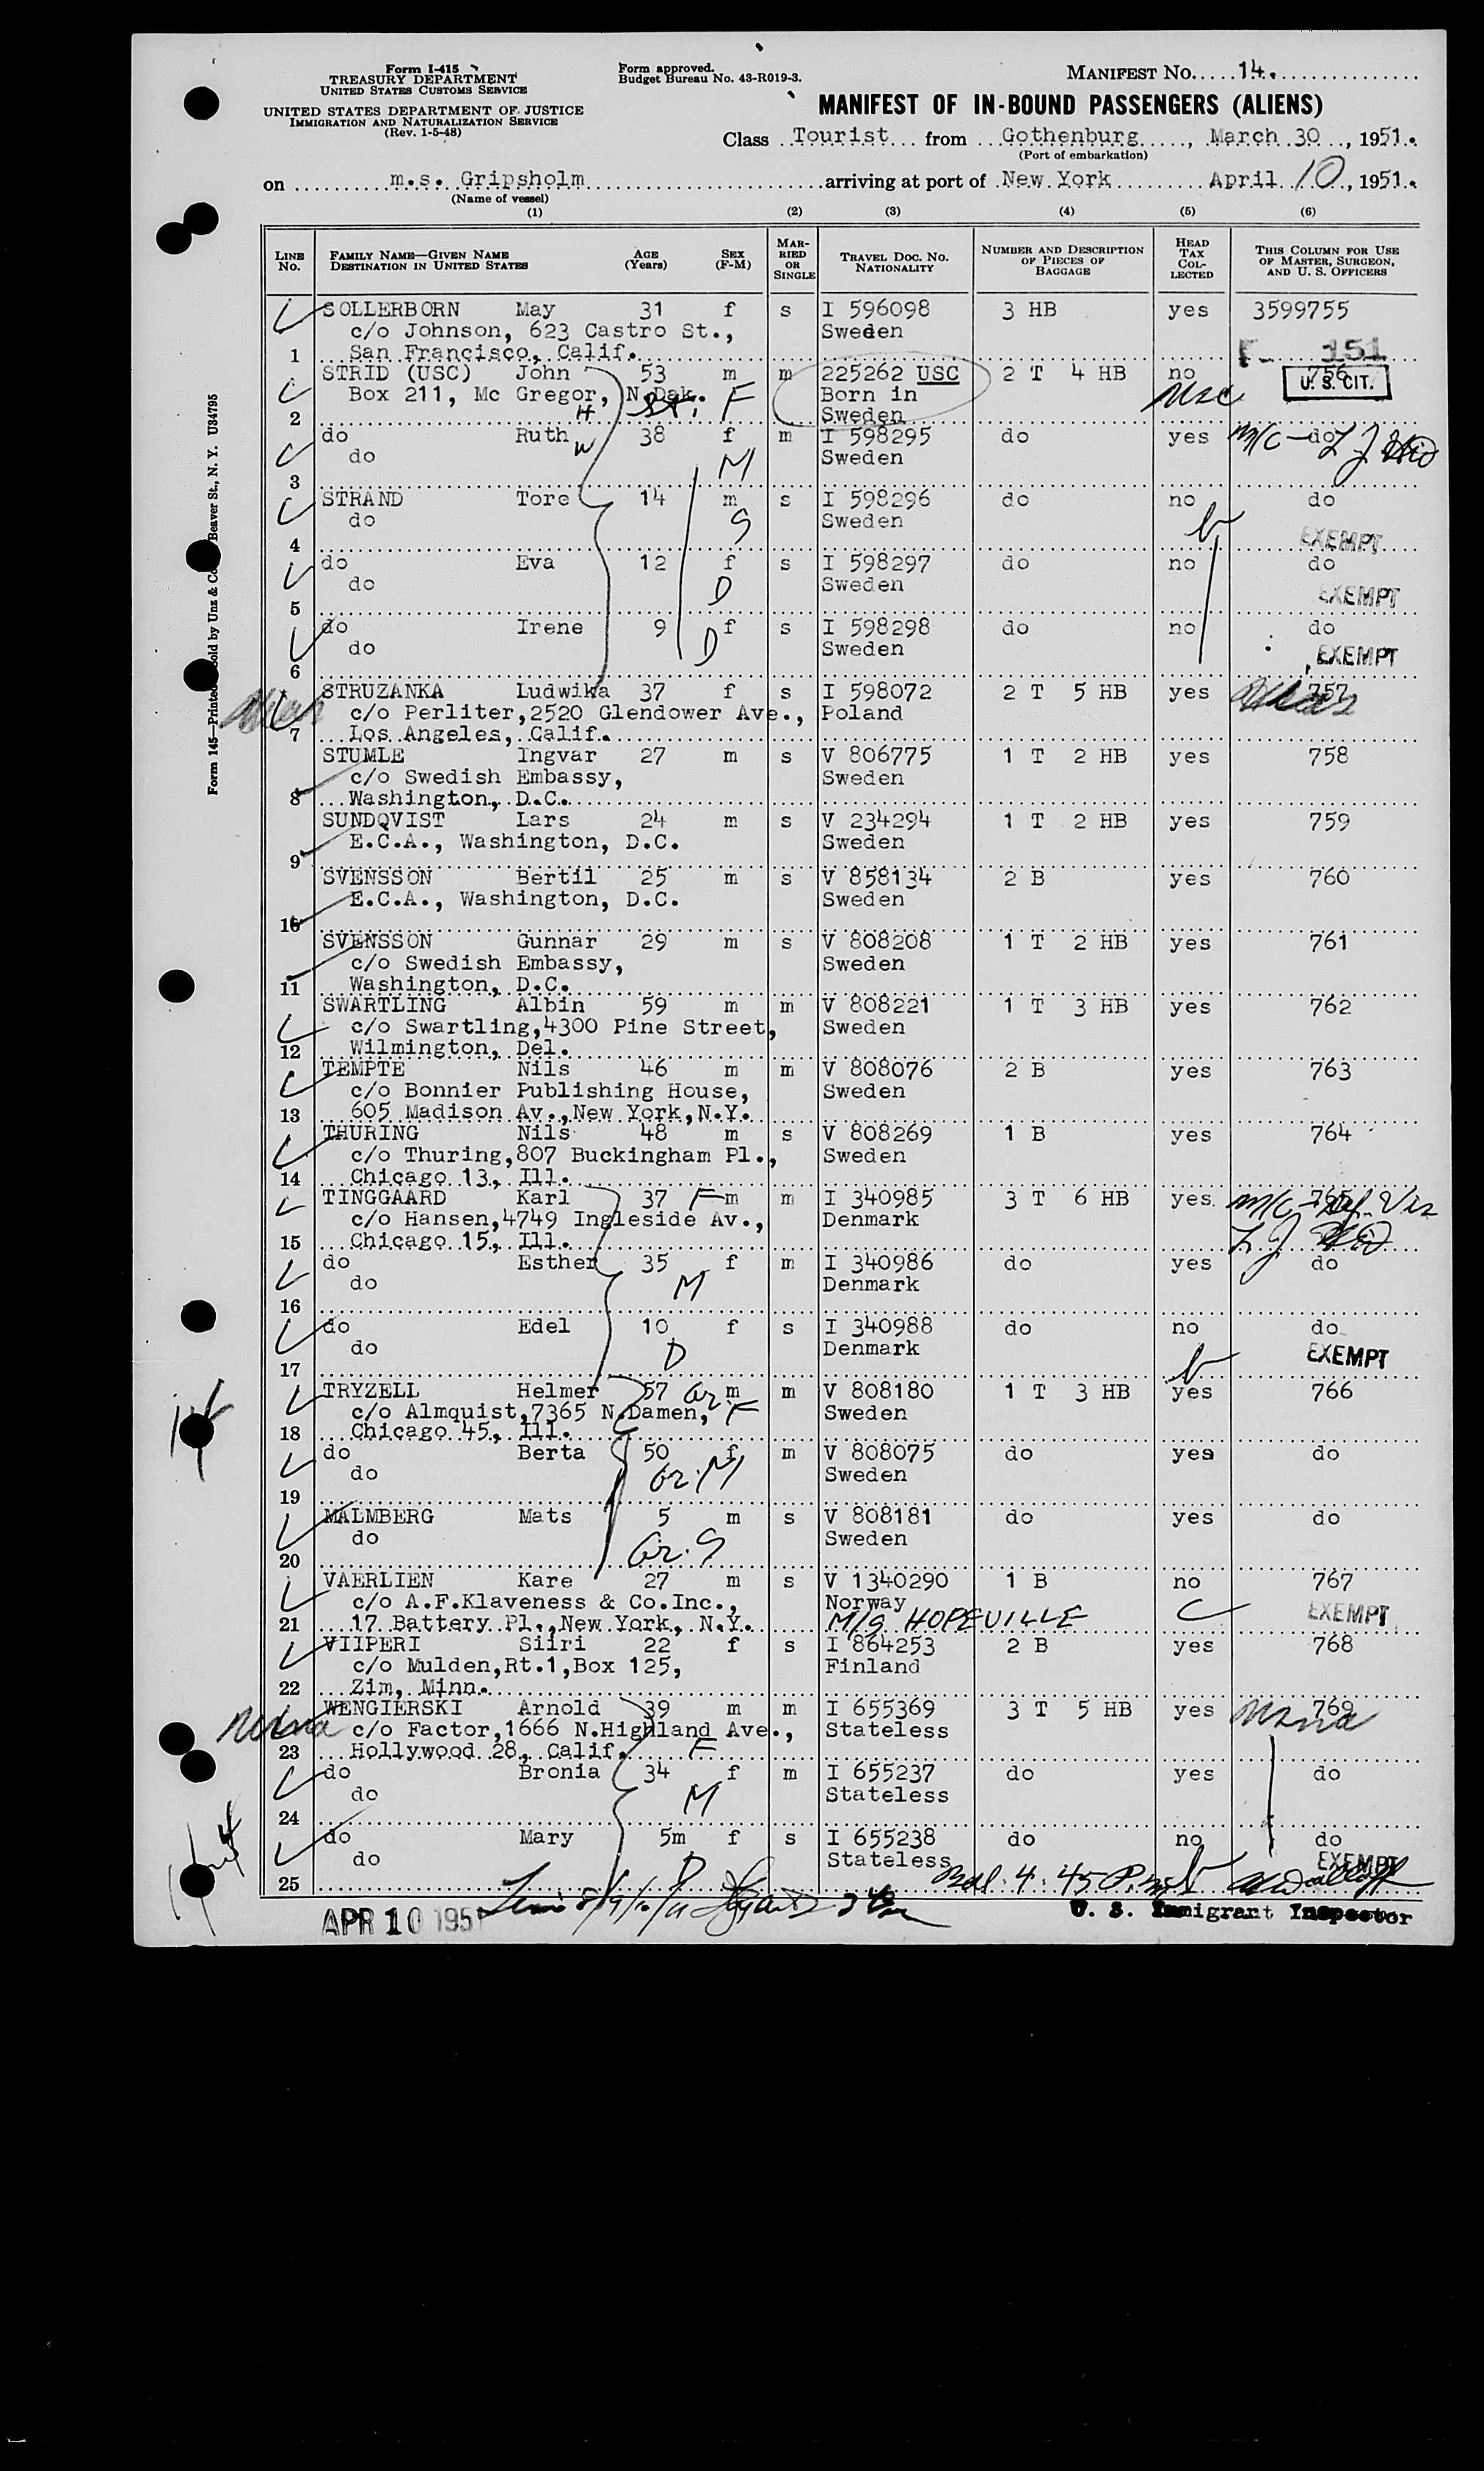 Form I-415
TREASURY DEPARTMENT
UNITED STATES CUSTOMS SERVICE
UNITED STATES DEPARTMENT OF JUSTICE
IMMIGRATION AND NATURALIZATION SERVICE
(Rev. 1-5-48)
Form approved.
Budget Bureau No. 43-R019-3.
MANIFEST No. 14.
MANIFEST OF IN-BOUND PASSENGERS (ALIENS)
Class Tourist from Gothenburg, March 30, 1951.
(Port of embarkation)
on m.s. Gripsholm arriving at port of New York April 10, 1951.
(Name of vessel)
(1) (2) (3) (4) (5) (6)
LINE No. FAMILY NAME—GIVEN NAME DESTINATION IN UNITED STATES AGE (Years) SEX (F-M) MARRIED OR SINGLE TRAVEL DOC. NO. NATIONALITY NUMBER AND DESCRIPTION OF PIECES OF BAGGAGE HEAD TAX COLLECTED THIS COLUMN FOR USE OF MASTER, SURGEON, AND U. S. OFFICERS
SOLLERBORN May 31 f s I 596098 3 HB yes 3599755
c/o Johnson, 623 Castro St., Sweden
1 San Francisco, Calif. 151
STRID (USC) John 53 m m 225262 USC 2 T 4 HB no 756
Box 211, Mc Gregor, N.Dak. F Born in USC U. S. CIT.
2 H St. Sweden
do Ruth 38 f m I 598295 do yes do M/C
do W Sweden
3 M
STRAND Tore 14 m s I 598296 do no do
do S Sweden
4 EXEMPT
do Eva 12 f s I 598297 do no do
do D Sweden EXEMPT
5
do Irene 9 f s I 598298 do no do
do D Sweden EXEMPT
6
STRUZANKA Ludwika 37 f s I 598072 2 T 5 HB yes 757
c/o Perliter,2520 Glendower Ave., Poland
7 Los Angeles, Calif.
STUMLE Ingvar 27 m s V 806775 1 T 2 HB yes 758
c/o Swedish Embassy, Sweden
8 Washington, D.C.
SUNDQVIST Lars 24 m s V 234294 1 T 2 HB yes 759
E.C.A., Washington, D.C. Sweden
9
SVENSSON Bertil 25 m s V 858134 2 B yes 760
E.C.A., Washington, D.C. Sweden
10
SVENSSON Gunnar 29 m s V 808208 1 T 2 HB yes 761
c/o Swedish Embassy, Sweden
11 Washington, D.C.
SWARTLING Albin 59 m m V 808221 1 T 3 HB yes 762
c/o Swartling,4300 Pine Street, Sweden
12 Wilmington, Del.
TEMPTE Nils 46 m m V 808076 2 B yes 763
c/o Bonnier Publishing House, Sweden
13 605 Madison Av.,New York,N.Y.
THURING Nils 48 m s V 808269 1 B yes 764
c/o Thuring,807 Buckingham Pl., Sweden
14 Chicago 13, Ill.
TINGGAARD Karl 37 F m m I 340985 3 T 6 HB yes 765 M/C
c/o Hansen,4749 Ingleside Av., Denmark
15 Chicago 15, Ill.
do Esther 35 f m I 340986 do yes do
do M Denmark
16
do Edel 10 f s I 340988 do no do
do D Denmark EXEMPT
17
TRYZELL Helmer 57 Gr. m m V 808180 1 T 3 HB yes 766
c/o Almquist,7365 N.Damen, F Sweden
18 Chicago 45, Ill.
do Berta 50 f m V 808075 do yes do
do Gr. M Sweden
19
MALMBERG Mats 5 m s V 808181 do yes do
do Gr. S Sweden
20
VAERLIEN Kare 27 m s V 1340290 1 B no 767
c/o A.F.Klaveness & Co.Inc., Norway C EXEMPT
21 17 Battery Pl.,New York, N.Y. M/S HOPEVILLE
VIIPERI Siiri 22 f s I 864253 2 B yes 768
c/o Mulden,Rt.1,Box 125, Finland
22 Zim, Minn.
WENGIERSKI Arnold 39 m m I 655369 3 T 5 HB yes 769
c/o Factor,1666 N.Highland Ave., Stateless
23 Hollywood 28, Calif. F
do Bronia 34 f m I 655237 do yes do
do M Stateless
24
do Mary 5m f s I 655238 do no do
do D Stateless EXEMPT
25 4:45 P.M.
APR 10 1951
U. S. Immigrant Inspector
Form 145—Printed
Sold by Unz &
Beaver St., N. Y. U34795